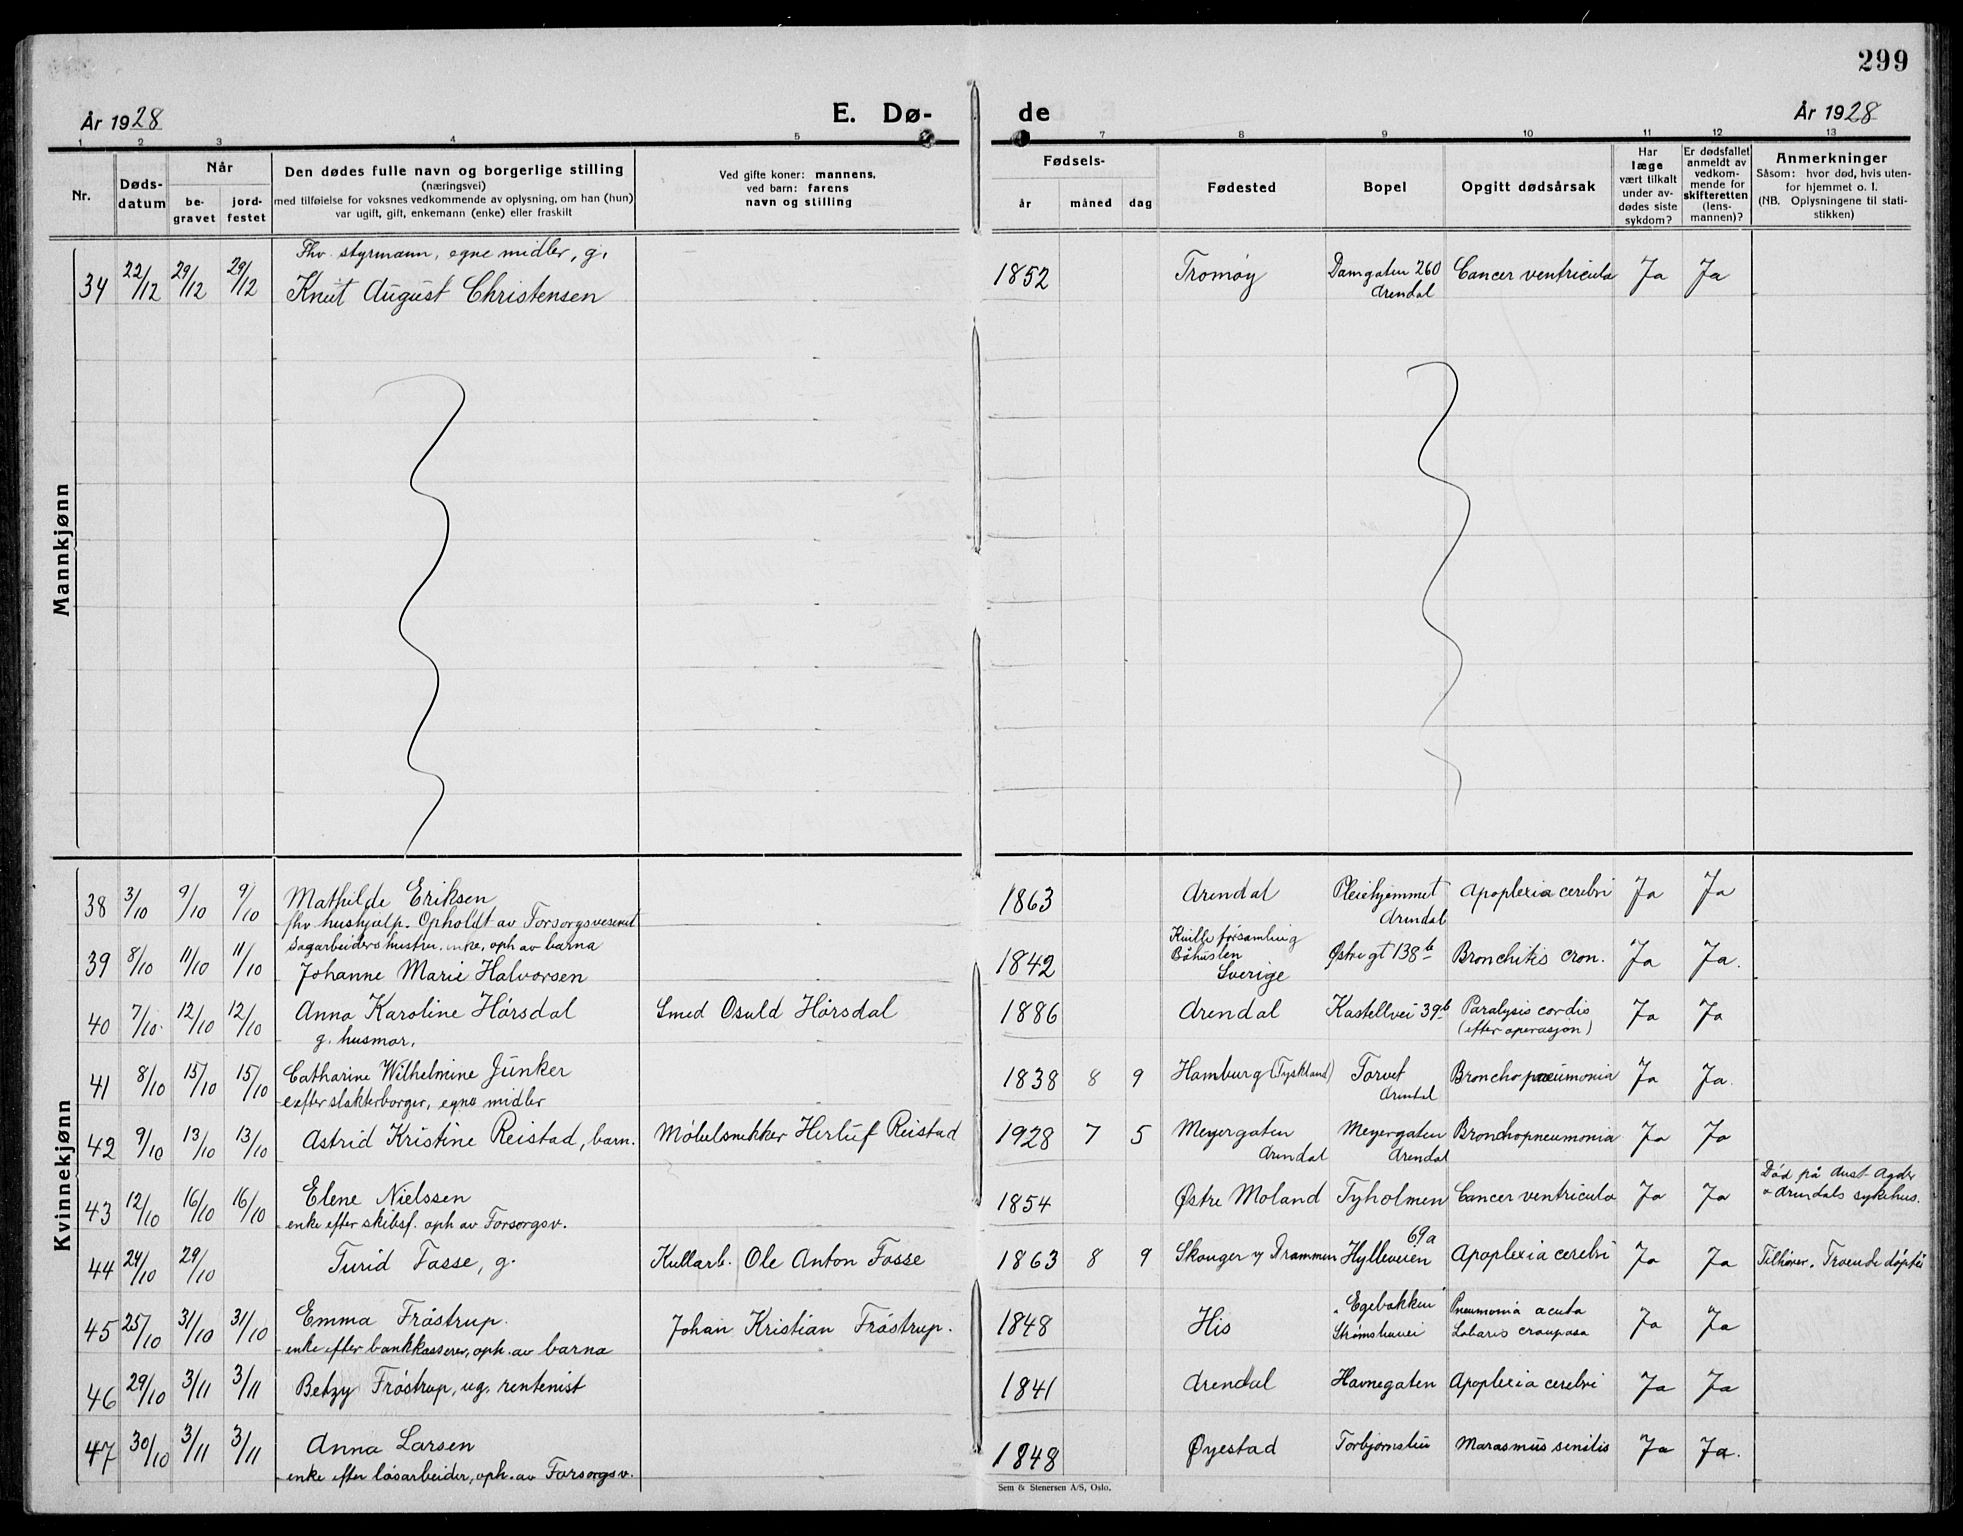 299
År 1928
E. Dø-
de
År 1928
1 2 3 4 5 7 8 9 10 11 12 13
Nr.
Døds-
datum
Når
be-
gravet
jord-
festet
Den dødes fulle navn og borgerlige stilling
(næringsvei)
med tilføielse for voksnes vedkommende av oplysning, om han (hun)
var ugift, gift, enkemann (enke) eller fraskilt
Ved gifte koner: mannens,
ved barn: farens
navn og stilling
Fødsels-
år måned dag
Fødested
Bopel
Opgitt dødsårsak
Har
læge
vært tilkalt
under av-
dødes siste
sykdom?
Er dødsfallet
anmeldt av
vedkom-
mende for
skifteretten
(lens-
mannen)?
Anmerkninger
Såsom: hvor død, hvis uten-
for hjemmet o. l.
(NB. Oplysningene til stati-
stikken)
Mannkjønn
Fhv. styrmann, egne midler, g.
34 22/12 29/12 29/12 Knut August Christensen 1852 Tromøy Damgaten 260 Cancer ventricula Ja Ja
Arendal
Kvinnekjønn
38 3/10 9/10 9/10 Mathilde Eriksen 1863 Arendal Pleiehjemmet Apoplexia cerebri Ja Ja
fhv hushjælp. Opholdt av Forsorgsvesenet Arendal
Sagarbeiders hustru. enke, oph av barna Kville forsamling
39 8/10 11/10 11/10 Johanne Marie Halvorsen 1842 Båhuslen Østregt 138b Bronchitis cron. Ja Ja.
Sverige
40 7/10. 12/10 12/10 Anna Karoline Hørsdal Smed Osuld Hørsdal 1886 Arendal Kastellvei 39b Paralysis cordis Ja Ja
g. husmor. (efter operasjon)
41 8/10 15/10 15/10 Catharine Wilhelmine Junker 1838 8 9 Hamburg (Tyskland) Torvet Bronchopneumonia Ja Ja.
e efter slakterborger, egne midler Arendal
42 9/10 13/10 13/10 Astrid Kristine Reistad, barn. Møbelsnekker Herluf Reistad 1928 7 5 Meyergaten Meyergaten Bronchopneumonia Ja Ja
Arendal Arendal
43 12/10 16/10 16/10 Elene Nielssen 1854 Østre Moland Tyholmen Cancer ventricula Ja Ja Død på Aust-Agder
enke efter skibsf. oph av Forsorgsv. + Arendals sykehus.
69a
44 24/10 29/10 Turid Fosse, g. Kullarb. Ole Anton Fosse 1863 8 9 Skouger v/ Drammen Hylleveien Apoplexia cerebri Ja Ja Tilhører. Troende døpte
45 25/10 31/10 31/10 Emma Frøstrup. Johan Kristian Frøstrup. 1848 His "Egebakken" Pneumonia acuta Ja Ja
enke efter bankkasserer, oph. av barna Strømsbuvei Lobaris crouposa
46 29/10 3/11 3/11 Betzy Frøstrup, ug. rentenist 1841 Arendal Havnegaten Apoplexia cerebri Ja Ja
47 30/10 3/11 3/11 Anna Larsen 1848 Øyestad Torbjørnsbu Marasmus senilis Ja Ja.
enke efter løsarbeider, oph. av Forsorgsv.
Sem & Stenersen A/S, Oslo.